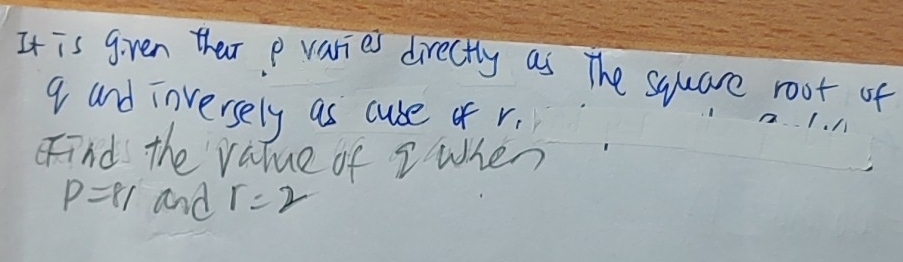 It is given that p varies directly as the square root of
q and inversely as cube of r.
Find the value of q when
P=81 and r=2